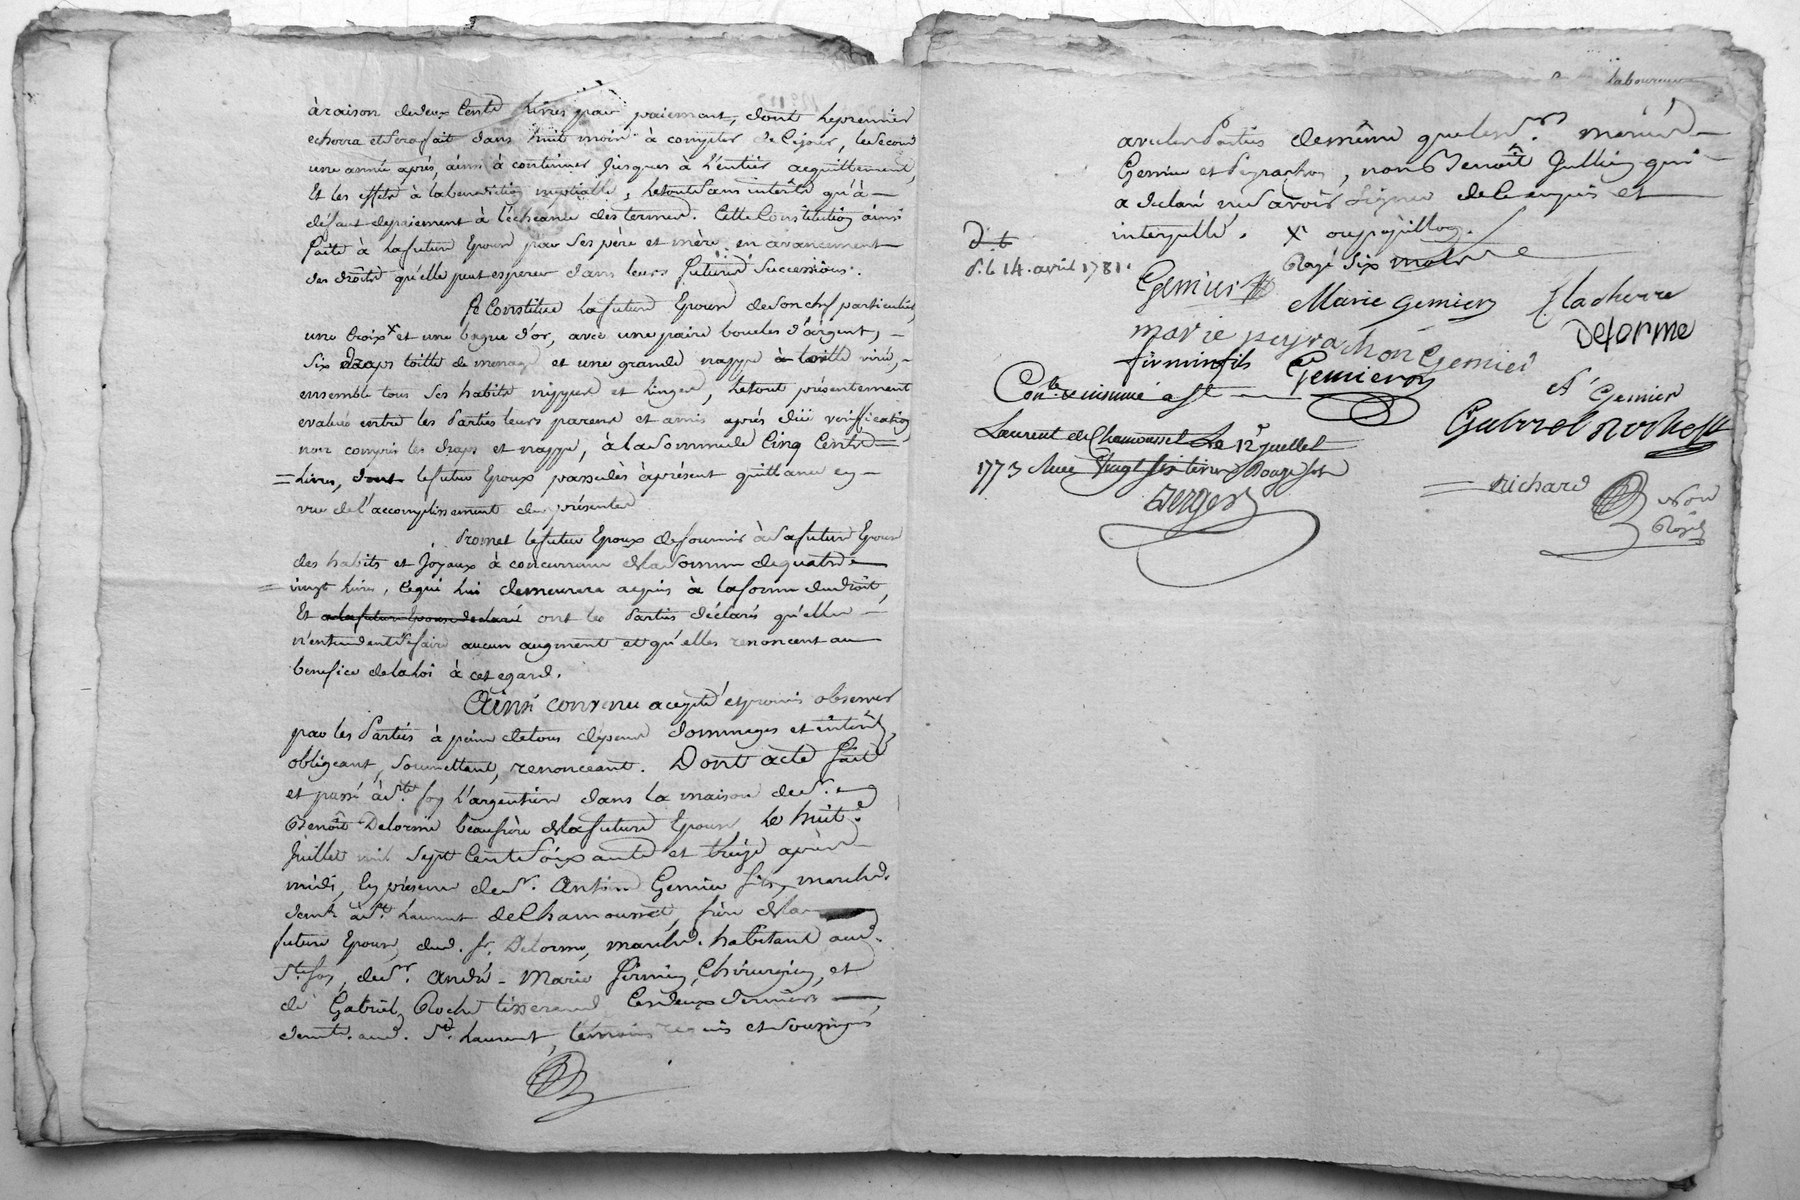 à raison de deux Cents Livres par paiement, dont le premier
echerra et sera fait dans huit mois à compter de Ce jour, le second
une année après, ainsi à continuer jusques à l'entier acquittement,
Et les effets à la benediction nuptialle, le tout sans intérêts qu'à
défaut de paiement à l'écheance des termes. Cette Constitution ainsi
faite à la future Epouse par Ses père et mère en avancement
des droits qu'elle peut esperer dans leurs futures Successions.
Se Constitue la future Epouse de son chef particulier,
une Croix x et une bague d'or, avec une paire boucles d'argent,
Six draps toille de menage et une grande nappe
ensemble tous Ses habits nippes et linges, le tout présentement
evalués entre les Parties leurs parens et amis après düe verification
non compris les draps et nappe, à la Somme de Cinq Cents
Livres, dont le futur Epoux passe dès à présent quittance en
vue de l'accomplissement des présentes
Promet le futur Epoux de fournir à Sa future Epouse
des habits et Joyaux à concurrance de la Somme de quatre
vingt Livres, Ce qui lui demeurera acquis à la forme du droit,
Et a la future Epouse declaré ont les Parties déclaré qu'elles
n'entendent se faire aucun augment et qu'elles renoncent au
benefice de la Loi à cet egard.
Ainsi convenu accepté et promis observer
par les Parties à peine de tous dépens dommages et intérêts,
obligeant, Soumettant, renonceant. Dont acte fait
et passé à Ste. foy l'argentière dans la maison de Sr.
Benoît Delorme beaufrère de la future Epouse le huit
Juillet mil Sept Cents Soixante et treize après
midi, En présence de Sr. Antoine Gemier fils, marchd.
demt. à St. Laurent de Chamousset, frère de la
future Epouse, dud. Sr. Delorme, marchd. habitant aud.
Ste. foy, de Sr. André-Marie firmin, Chirurgien, et
de Gabriel Roche tisserand Ces deux derniers
demt. aud. St. Laurent, témoins requis et Soussignés
avec les Parties de même que les Srs. mariés
Gemier et Peyrachon, non Benoît Jullien qui
a declaré ne savoir Signer de Ce enquis et
interpellé. x ou papillon.
Rayé Six mots
D. t.
d. le 14. avril 1781.
Gemier
Marie Gemier
f lacherre
marie peyrachon
Gemier
Delorme
firmin fils
Gemier
A Gemier
Gabriel Roche
Conlé. & insinué a St.
Laurent de Chamousset Le 12 Juillet
1773 Reçu Vingt Six Livres Douze sols
Berger
richard
Nore
Royal